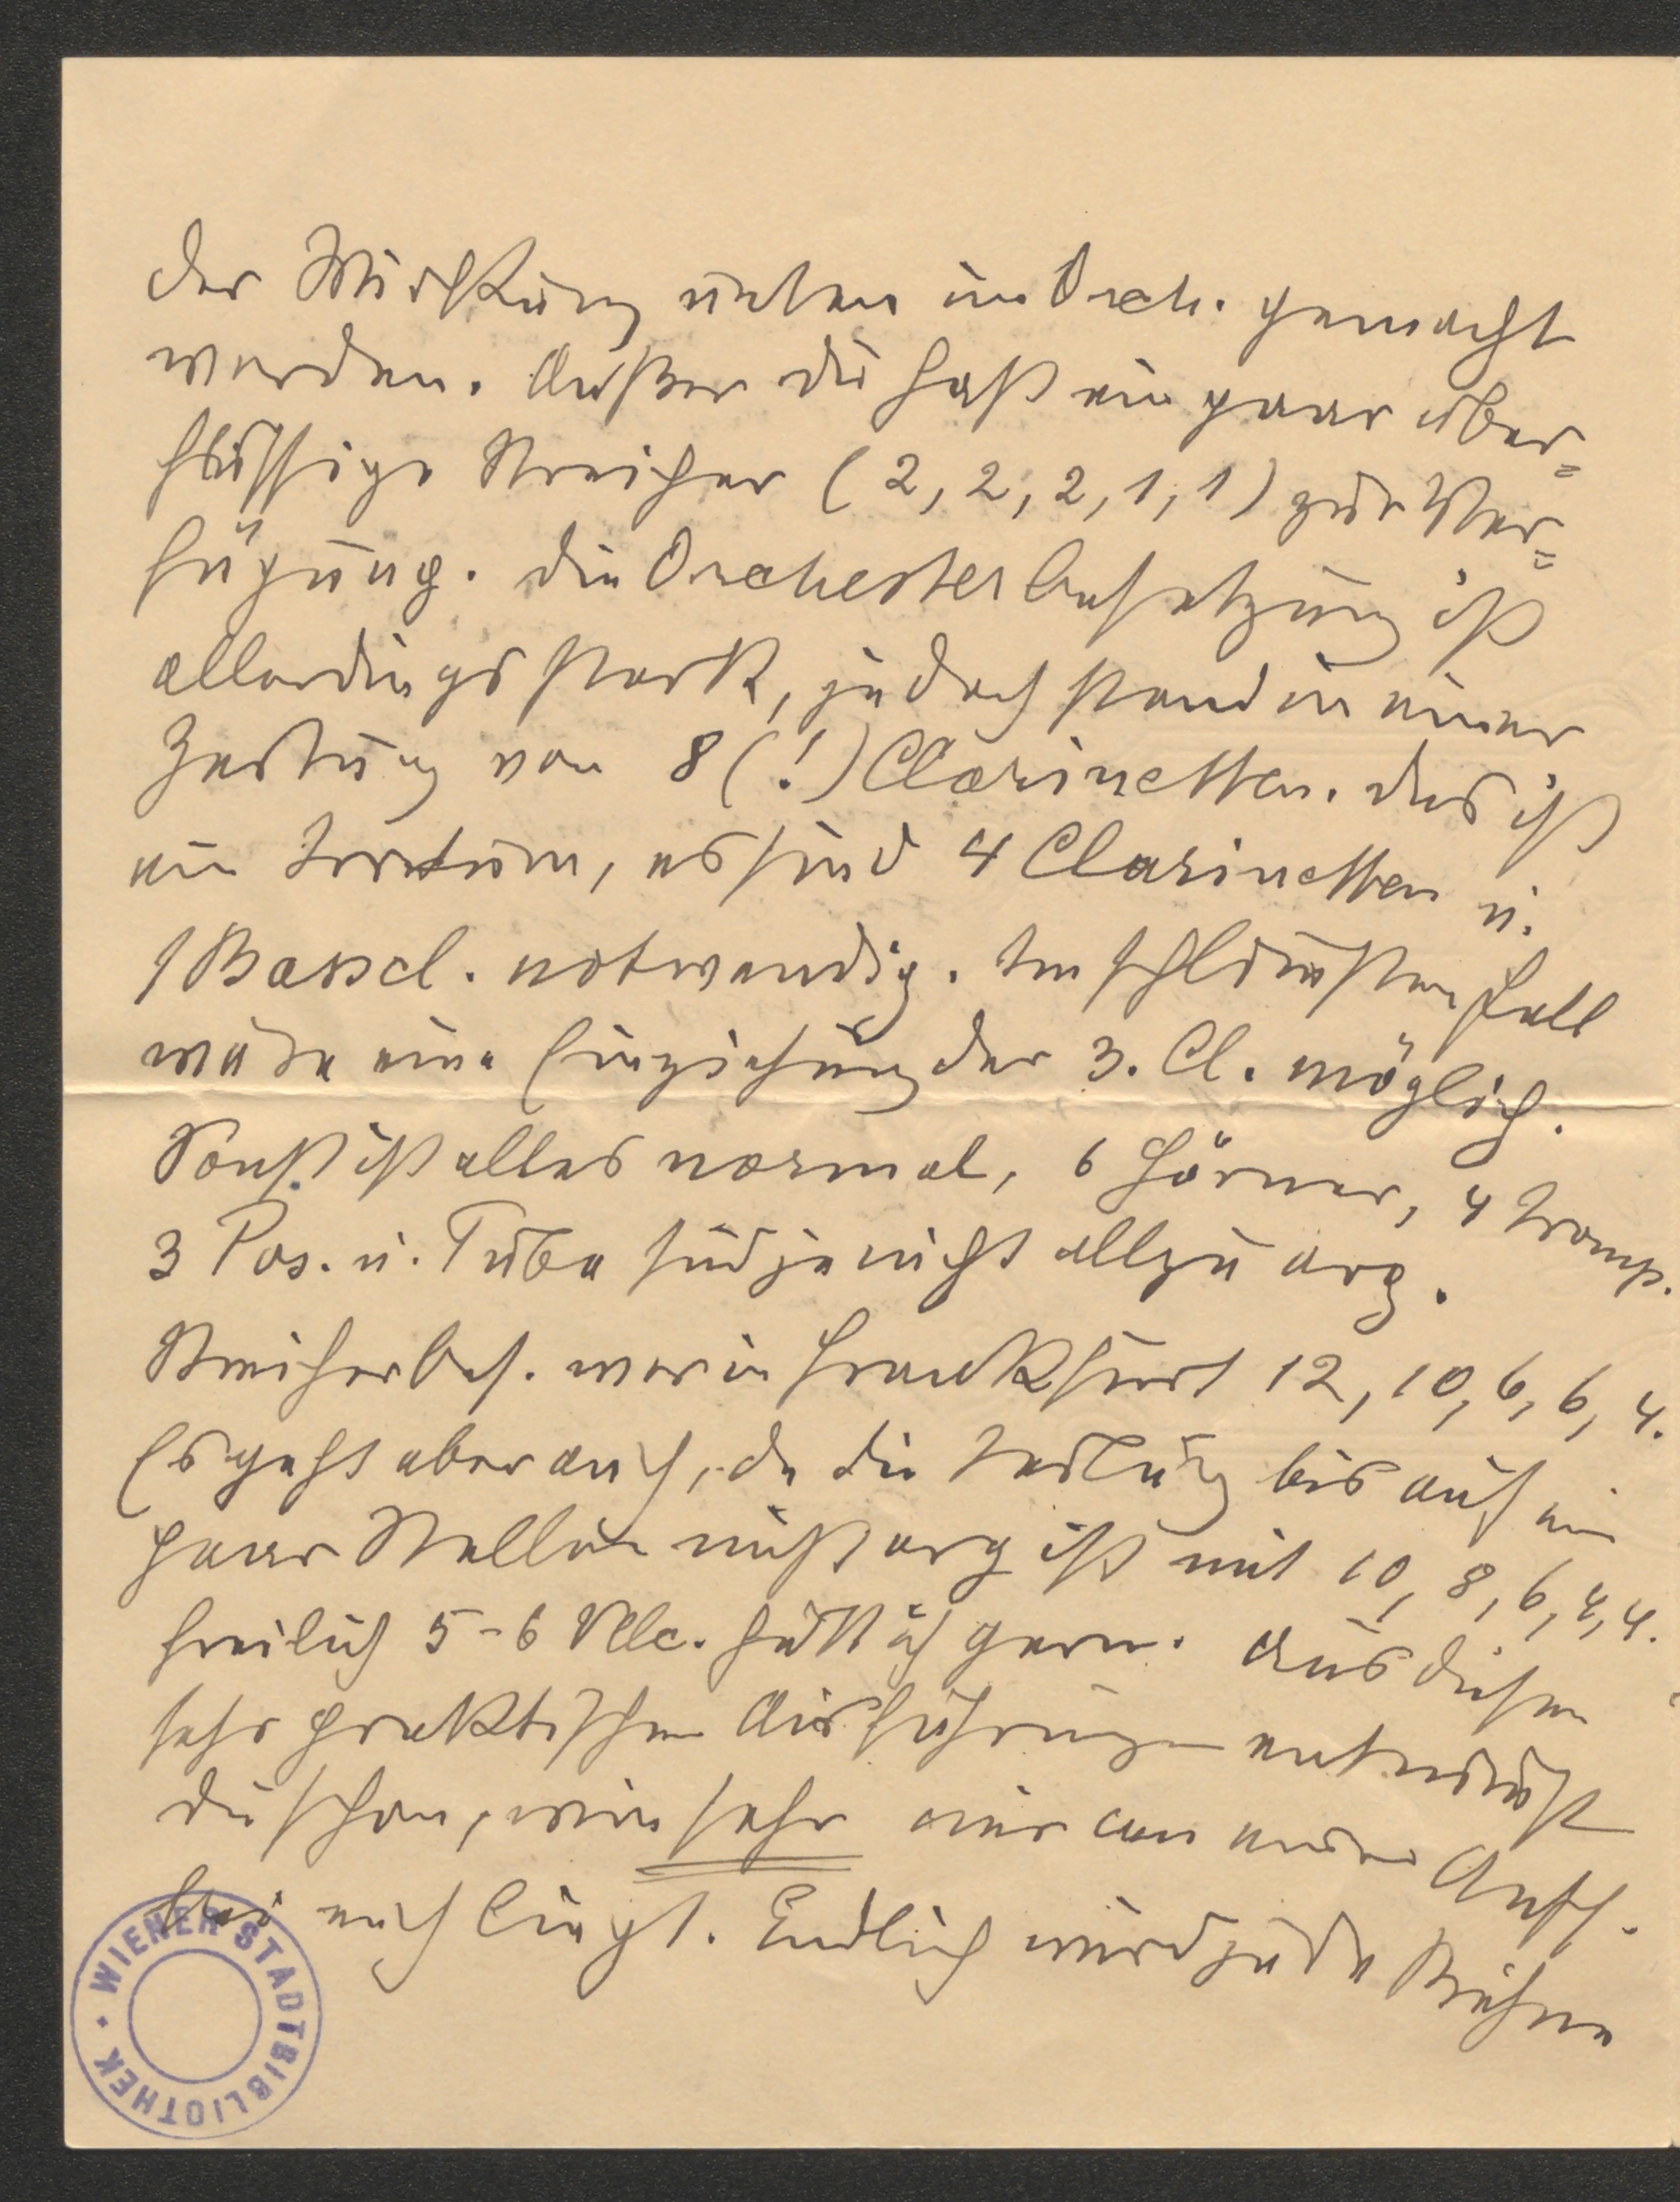 der Wirkung unten im Orch. gemacht
werden. Außer du hast ein paar über=
flüssige Streicher (2, 2, 2, 1, 1) zur Ver=
fügung. Die Orchesterbesetzung ist
allerdings stark, jedoch stand in einer
Zeitung von 8 (!) Clarinetten. Das ist
ein Irrtum, es sind 4 Clarinetten u.
1 Basscl. notwendig. Im schlimmsten Fall
wäre eine Einziehung der 3. Cl. möglich.
Sonst ist alles normal, 6 Hörner, 4 Tromp.
3 Pos. u. Tuba sind ja nicht allzu arg.
Streicherbes. war in Frankfurt 12, 10, 6, 6, 4.
Es geht aber auch, da die Teilung bis auf ein
paar Stellen nicht arg ist mit 10, 8, 6, 4, 4.
freilich 5-6 Vllc. hätt ich gern. Aus diesen
sehr praktischen Ausführungen entnimmst
du schon, wie sehr mir an einer Auff.
bei euch liegt. Endlich wird jede Bühne
WIENER STADTBIBLIOTHEK